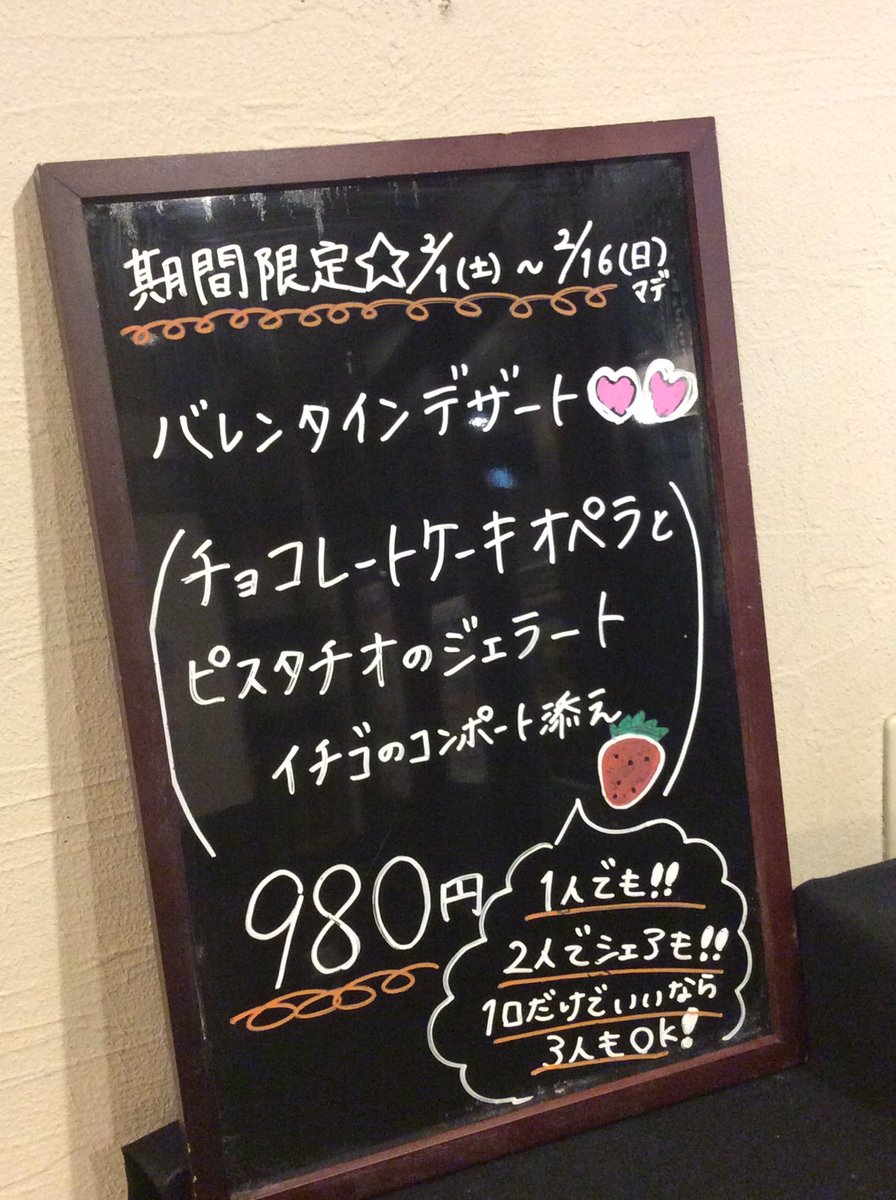 期間限定☆2/1(土)~2/16(日)マデ
バレンタインデザート
(チョコレートケーキオペラと
ピスタチオのジェラート
イチゴのコンポート添え)
980円
1人でも!!
2人でシェアも!!
1口だけでいいなら
3人もOK!